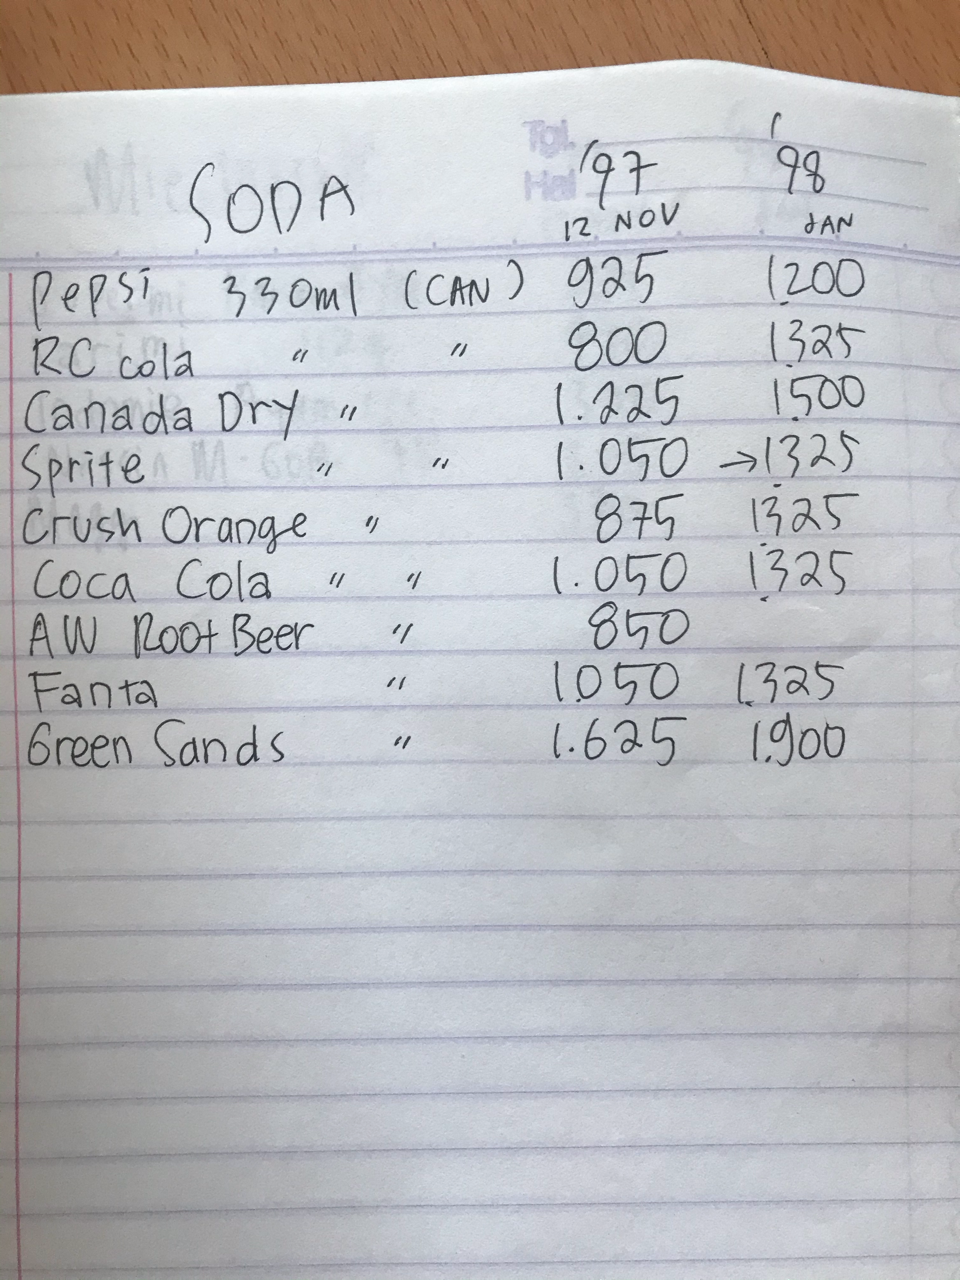 Tgl.
Hal
SODA '97 '98
12 NOV JAN
Pepsi 330ml (CAN) 925 1.200
RC cola " " 800 1.325
Canada Dry " 1.225 1.500
Sprite " " 1.050 →1.325
Crush Orange " 875 1.325
Coca Cola " " 1.050 1.325
AW Root Beer " 850
Fanta " 1050 1.325
Green Sands " 1.625 1.900